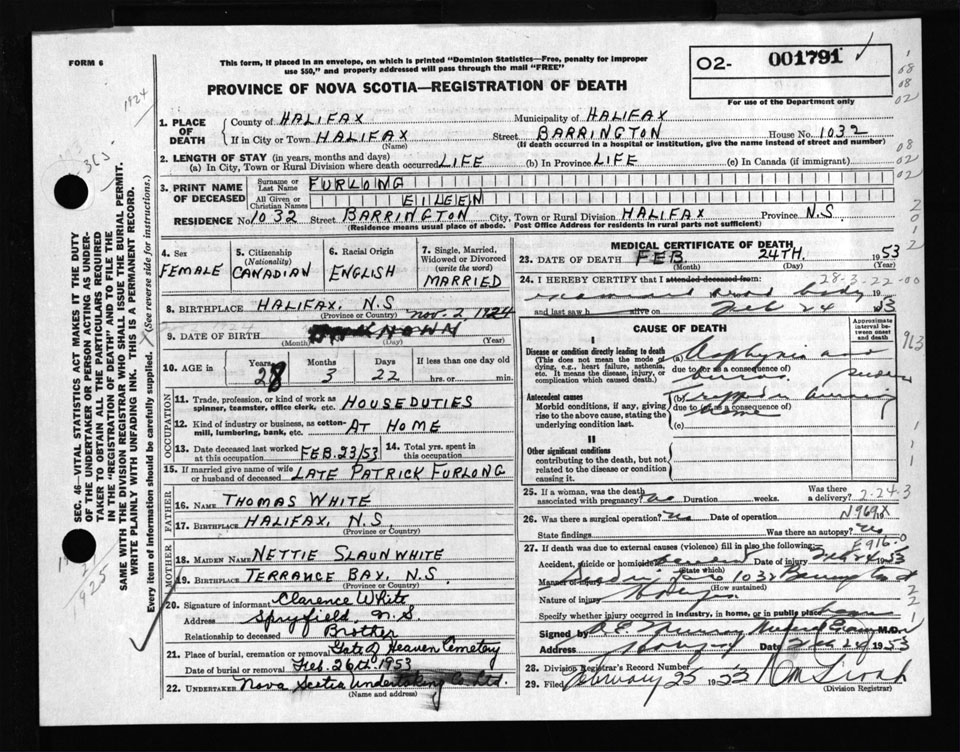 FORM 6
This form, if placed in an envelope, on which is printed "Dominion Statistics—Free, penalty for improper
use $50," and properly addressed will pass through the mail "FREE"
PROVINCE OF NOVA SCOTIA—REGISTRATION OF DEATH
02- 001791
For use of the Department only
1924
363
1. PLACE OF DEATH
County of HALIFAX Municipality of HALIFAX
If in City or Town HALIFAX Street BARRINGTON House No. 1032
(Name) (If death occurred in a hospital or institution, give the name instead of street and number)
2. LENGTH OF STAY (in years, months and days)
(a) In City, Town or Rural Division where death occurred LIFE (b) In Province LIFE (c) In Canada (if immigrant)
3. PRINT NAME OF DECEASED
Surname or Last Name FURLONG
All Given or Christian Names EILEEN
RESIDENCE No. 1032 Street BARRINGTON City, Town or Rural Division HALIFAX Province N.S.
(Residence means usual place of abode. Post Office Address for residents in rural parts not sufficient)
4. Sex FEMALE
5. Citizenship (Nationality) CANADIAN
6. Racial Origin ENGLISH
7. Single, Married, Widowed or Divorced (write the word) MARRIED
8. BIRTHPLACE HALIFAX, N.S
(Province or Country) Nov. 2, 1924
9. DATE OF BIRTH
(Month) (Day) (Year)
10. AGE in Years 28 Months 3 Days 22 If less than one day old hrs. or min.
OCCUPATION
11. Trade, profession, or kind of work as spinner, teamster, office clerk, etc. HOUSE DUTIES
12. Kind of industry or business, as cotton-mill, lumbering, bank, etc. AT HOME
13. Date deceased last worked at this occupation FEB. 23/53
14. Total yrs. spent in this occupation
15. If married give name of wife or husband of deceased LATE PATRICK FURLONG
FATHER
16. NAME THOMAS WHITE
17. BIRTHPLACE HALIFAX, N.S.
(Province or Country)
MOTHER
18. MAIDEN NAME NETTIE SLAUNWHITE
19. BIRTHPLACE TERRANCE BAY, N.S.
(Province or Country)
20. Signature of informant Clarence White
Address Spryfield, N.S.
Relationship to deceased Brother
21. Place of burial, cremation or removal Gate of Heaven Cemetery
Date of burial or removal Feb. 26th 1953
22. UNDERTAKER Nova Scotia Undertaking Co. Ltd.
(Name and address)
MEDICAL CERTIFICATE OF DEATH
23. DATE OF DEATH FEB. 24TH. 1953
(Month) (Day) (Year)
24. I HEREBY CERTIFY that I attended deceased from: 28-3-22-00
examined dead body 19
and last saw h alive on Feb 24 1953
CAUSE OF DEATH
Approximate interval between onset and death
I
Disease or condition directly leading to death
(This does not mean the mode of dying, e.g., heart failure, asthenia, etc. It means the disease, injury, or complication which caused death.)
(a) Asphyxia and
due to (or as a consequence of)
burns.
Antecedent causes
Morbid conditions, if any, giving rise to the above cause, stating the underlying condition last.
(b) Trapped in burning
due to (or as a consequence of)
home
(c)
II
Other significant conditions
contributing to the death, but not related to the disease or condition causing it.
25. If a woman, was the death associated with pregnancy? no Duration weeks. Was there a delivery? 2-24-3
26. Was there a surgical operation? no Date of operation N969.X
State findings Was there an autopsy? no
27. If death was due to external causes (violence) fill in also the following:— E916.0
Accident, suicide or homicide Date of injury Feb 24 1953
(State which)
Manner of injury 1032 Barrington St
(How sustained)
Nature of injury
Specify whether injured in industry, in home, or in public place home
Signed by Medical Examiner M.D.
Address Date Feb 24 1953
28. Division Registrar's Record Number
29. Filed February 25 1953
(Division Registrar)
SEC. 46—VITAL STATISTICS ACT MAKES IT THE DUTY
OF THE UNDERTAKER OR PERSON ACTING AS UNDER-
TAKER TO OBTAIN ALL THE PARTICULARS REQUIRED
IN THE "REGISTRATION OF DEATH" AND TO FILE THE
SAME WITH THE DIVISION REGISTRAR WHO SHALL ISSUE THE BURIAL PERMIT.
WRITE PLAINLY WITH UNFADING INK. THIS IS A PERMANENT RECORD.
Every item of information should be carefully supplied. (See reverse side for instructions.)
1925